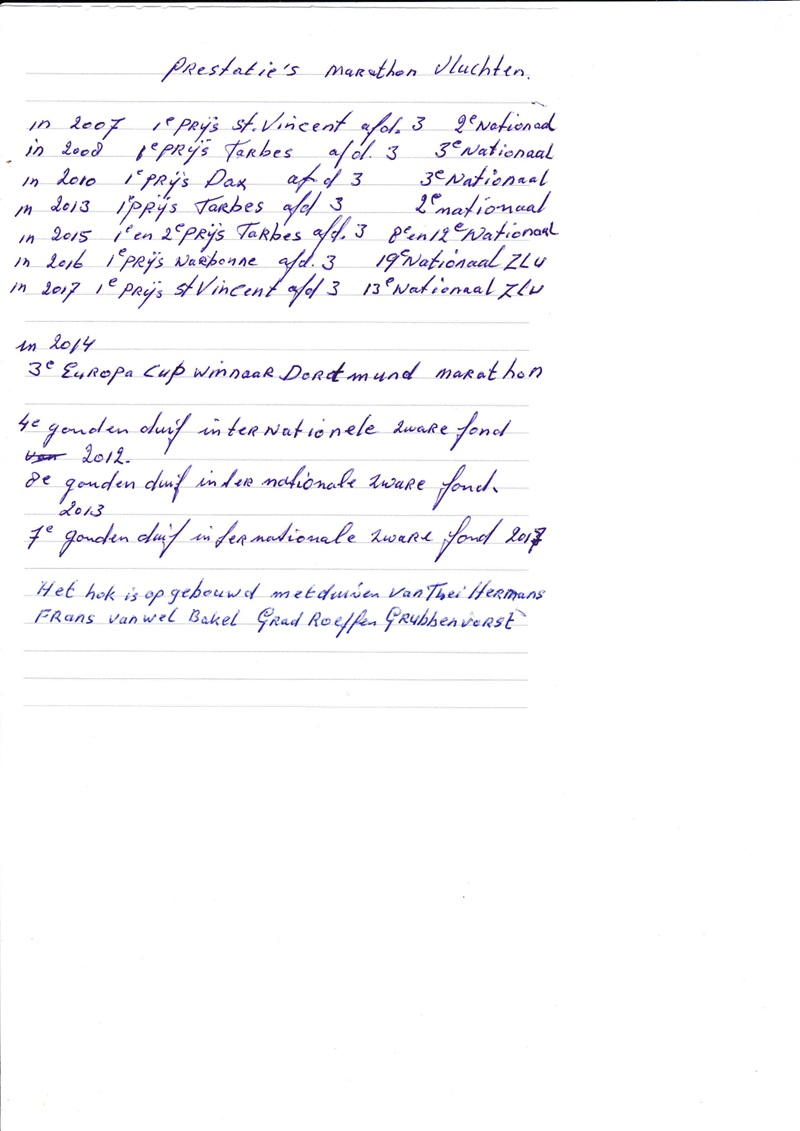 Prestatie's Marathon Vluchten.
in 2007 1e prijs St. Vincent afd. 3 2e Nationaal
in 2008 1e prijs Tarbes afd. 3 3e Nationaal
in 2010 1e prijs Dax afd 3 3e Nationaal
in 2013 1e prijs Tarbes afd 3 2e nationaal
in 2015 1e en 2e prijs Tarbes afd. 3 8e en 12e Nationaal
in 2016 1e prijs Narbonne afd. 3 19e Nationaal ZLU
in 2017 1e prijs St Vincent afd 3 13e Nationaal ZLU
in 2014
3e Europa Cup winnaar Dordtmund marathon
4e gouden duif internationele zware fond
van 2012.
8e gouden duif internationale zware fond.
2013
7e gouden duif internationale zware fond 2017
Het hok is opgebouwd met duiven van Thei Hermans
Frans van Wel Bakel Grad Roeffen Grubbenvorst